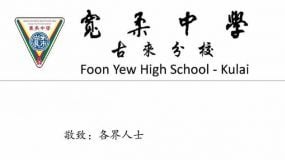 寬柔中學
古來分校
Foon Yew High School - Kulai
敬致：各界人士